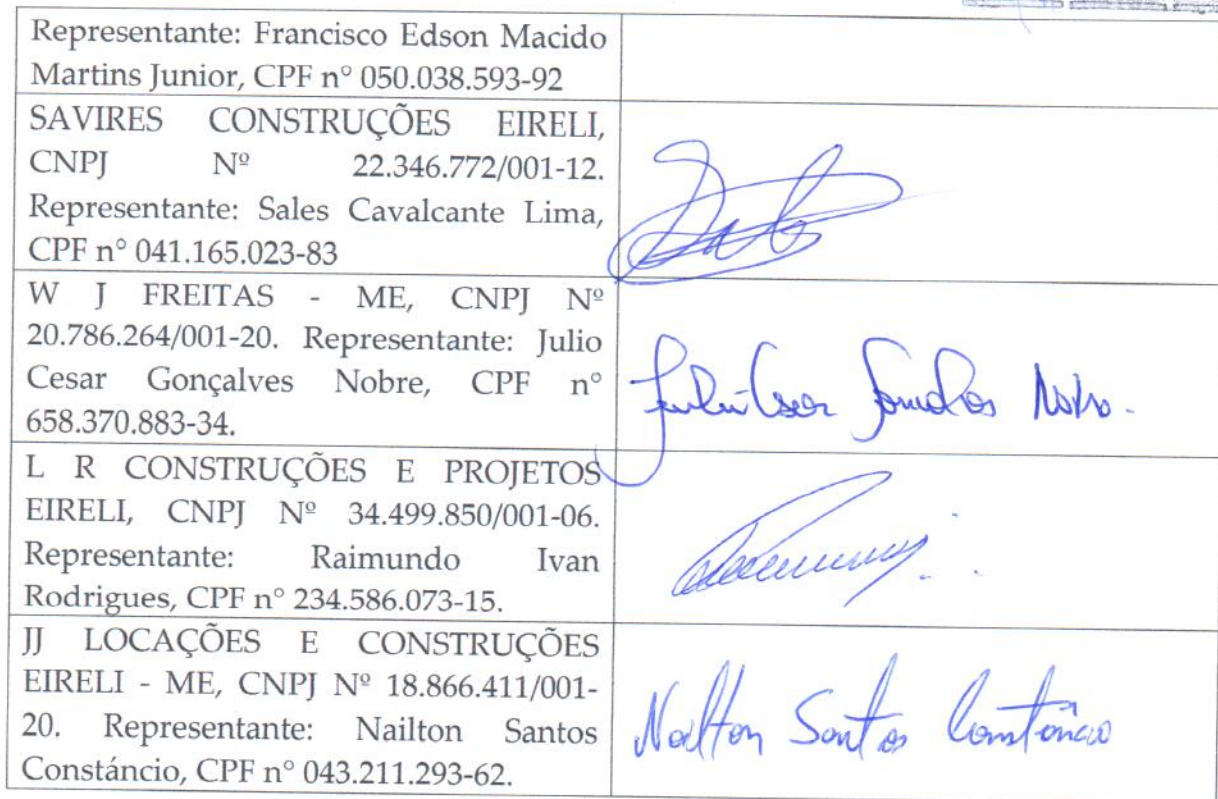 Representante: Francisco Edson Macido
Martins Junior, CPF n° 050.038.593-92
SAVIRES CONSTRUÇÕES EIRELI,
CNPJ Nº 22.346.772/001-12.
Representante: Sales Cavalcante Lima,
CPF n° 041.165.023-83
W J FREITAS - ME, CNPJ Nº
20.786.264/001-20. Representante: Julio
Cesar Gonçalves Nobre, CPF n°
658.370.883-34.
L R CONSTRUÇÕES E PROJETOS
EIRELI, CNPJ Nº 34.499.850/001-06.
Representante: Raimundo Ivan
Rodrigues, CPF n° 234.586.073-15.
JJ LOCAÇÕES E CONSTRUÇÕES
EIRELI - ME, CNPJ Nº 18.866.411/001-
20. Representante: Nailton Santos
Constáncio, CPF n° 043.211.293-62.
Nailton Santos Constâncio